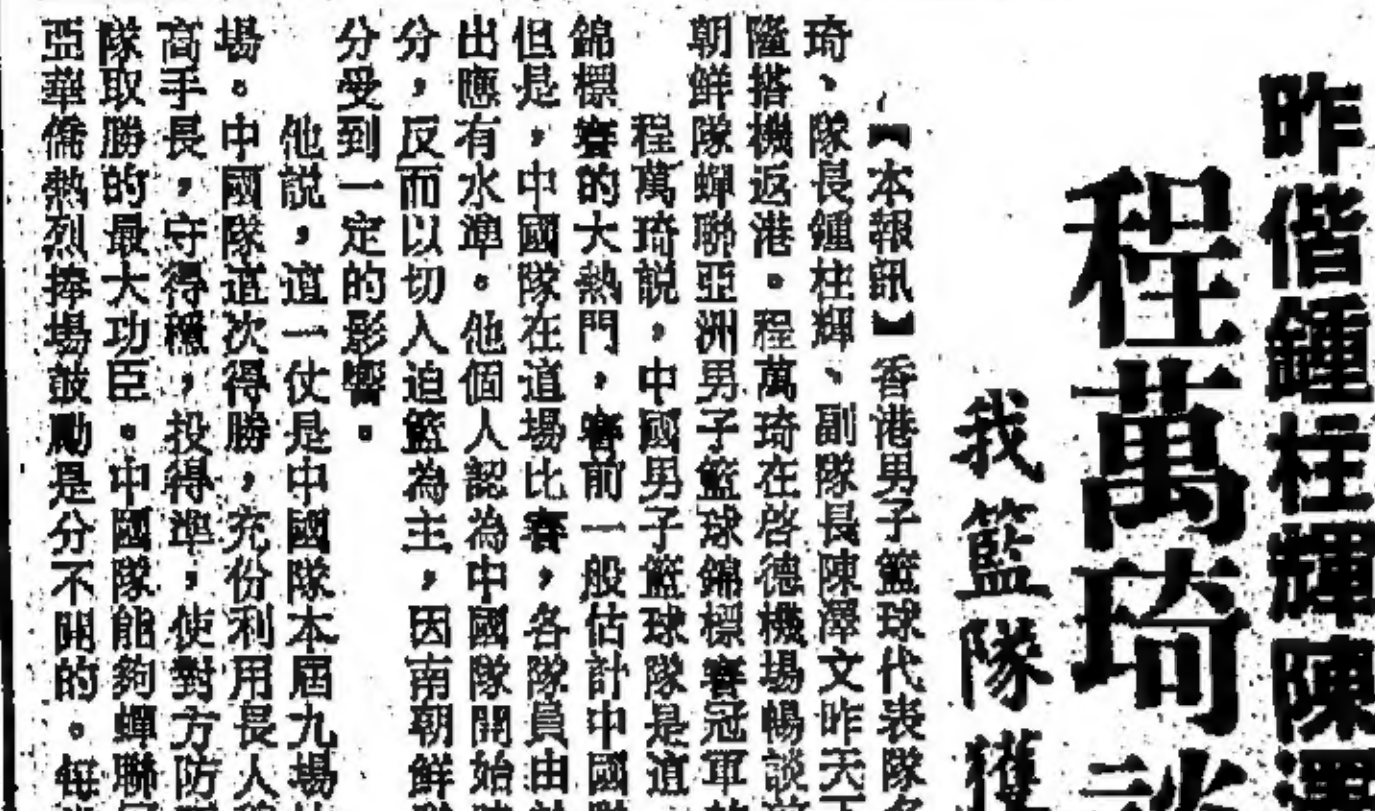 昨偕鍾柱輝陳澤
程萬琦談
我籃隊獲
【本報訊】香港男子籃球代表隊
琦、隊長鍾柱輝、副隊長陳澤文昨天下
隆搭機返港。程萬琦在啓德機場暢談
朝鮮隊蟬聯亞洲男子籃球錦標賽冠軍
程萬琦説,中國男子籃球隊是這
錦標賽的大熱門,賽前一般估計中國
但是,中國隊在這場比賽,各隊員由
出應有水準。他個人認為中國隊開始
分,反而以切入迫籃為主,因南朝鮮
分受到一定的影響。
他説,這一仗是中國隊本屆九場
場。中國隊這次得勝,充份利用長人
高手長,守得穩,投得準,使對方防
隊取勝的最大功臣。中國隊能夠蟬聯
亞華僑熱烈捧場鼓勵是分不開的。每